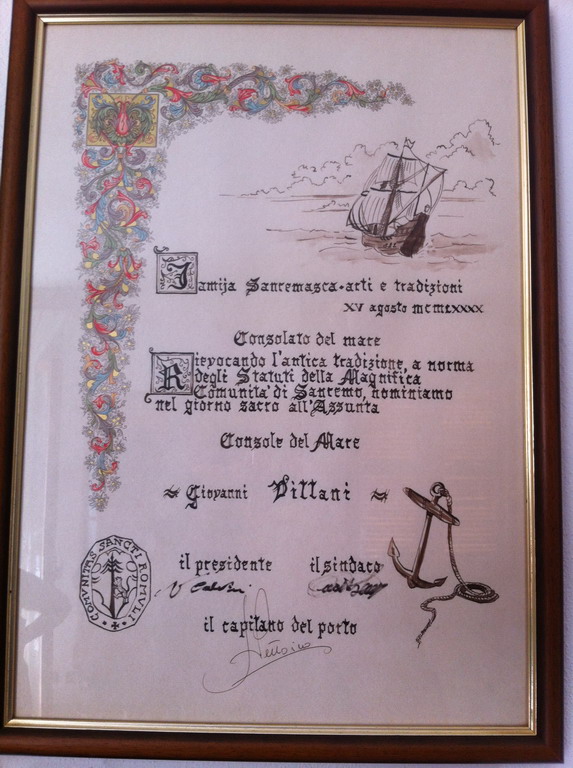 Famija Sanremasca-arti e tradizioni
XV agosto mcmlxxxx
Consolato del mare
Rievocando l'antica tradizione, a norma
degli Statuti della Magnifica
Comunita' di Sanremo, nominiamo
nel giorno sacro all'Assunta
Console del Mare
Giovanni Villani
il presidente il sindaco
COMVNITAS SANCTI ROMVLI
il capitano del porto